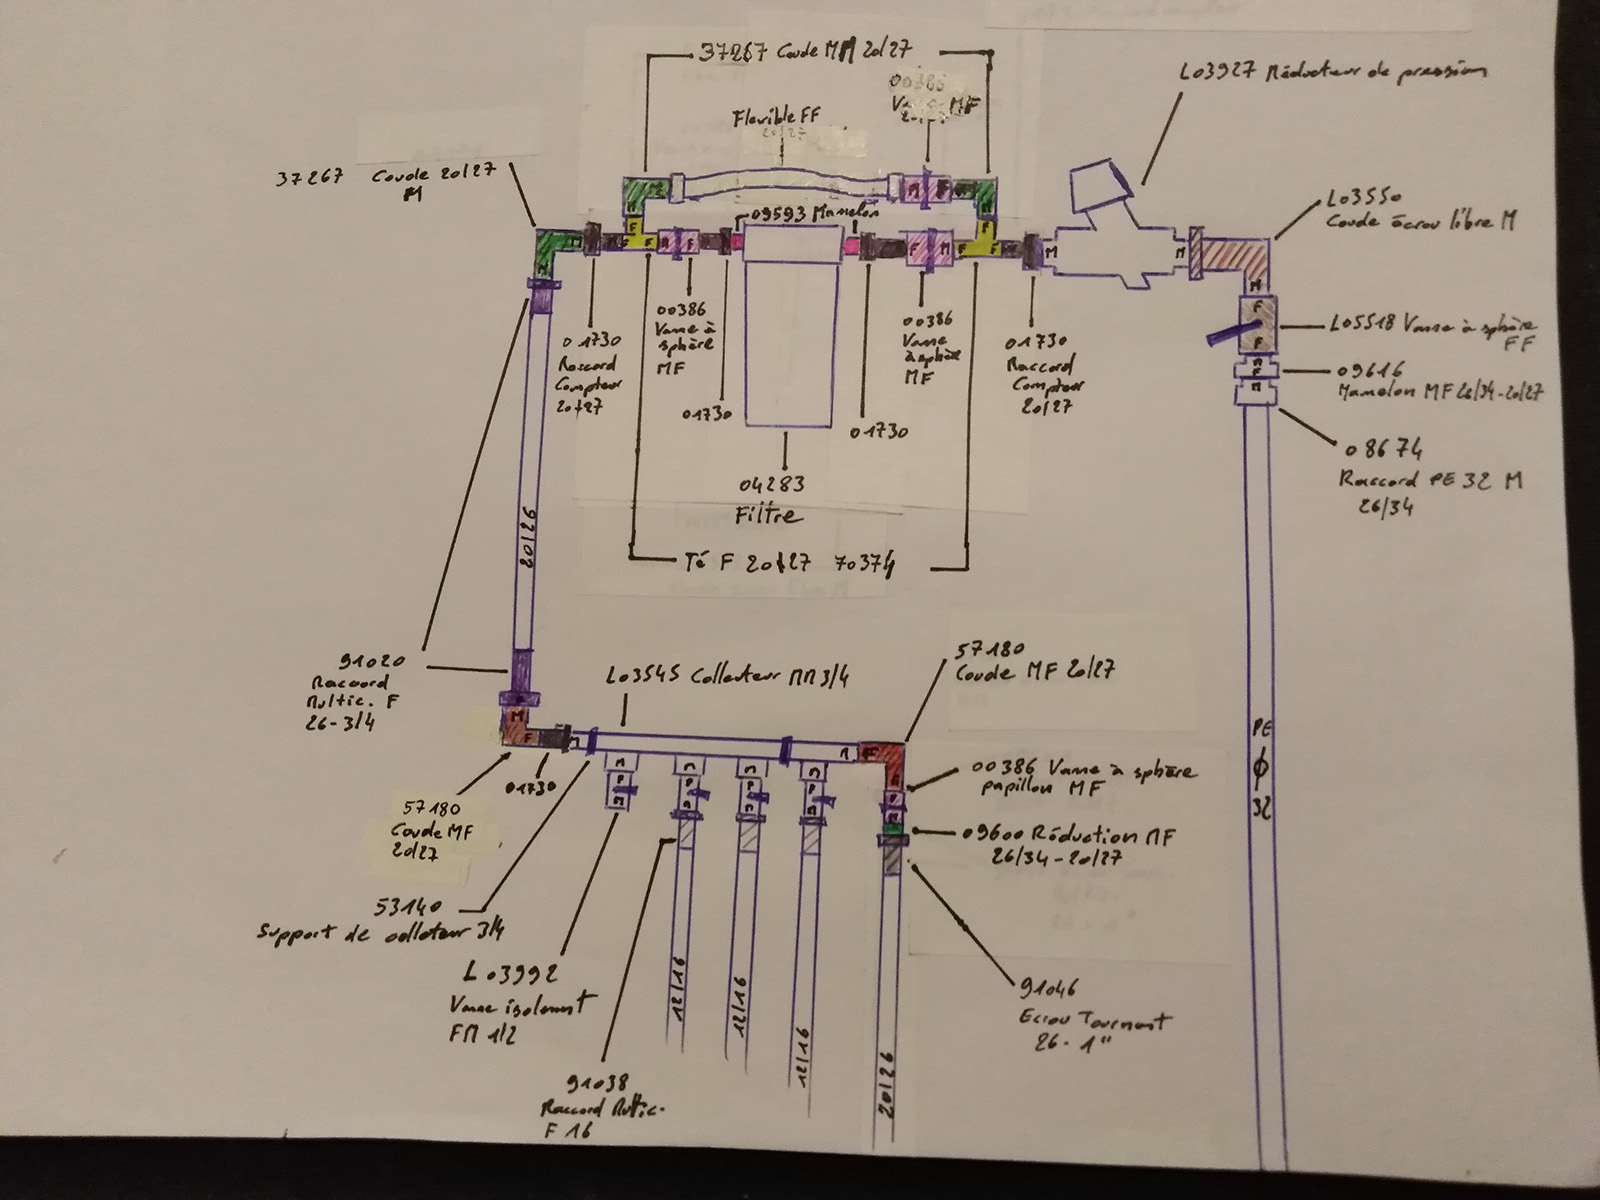 37267 Coude MM 20/27
00386
Vanne MF
Flexible FF
20/27
L03927 Réducteur de pression
37267 Coude 20/27
M
09593 Mamelon
L03550
Coude écrou libre M
01730
Raccord
Compteur
20/27
00386
Vanne à
sphère
MF
01730
04283
Filtre
01730
00386
Vanne
à sphère
MF
01730
Raccord
Compteur
20/27
L05518 Vanne à sphère
FF
09616
Mamelon MF 26/34-20/27
08674
Raccord PE 32 M
26/34
Té F 20/27 70374
20/26
91020
Raccord
Multic. F
26-3/4
L03545 Collecteur MM 3/4
57180
Coude MF 20/27
01730
57180
Coude MF
20/27
00386 Vanne à sphère
papillon MF
09600 Réduction MF
26/34-20/27
53140
Support de colloteur 3/4
L03992
Vanne isolement
FM 1/2
91038
Raccord Multic.
F 16
12/16
12/16
12/16
20/26
91046
Ecrou Tournant
26-1"
PE
ϕ
32